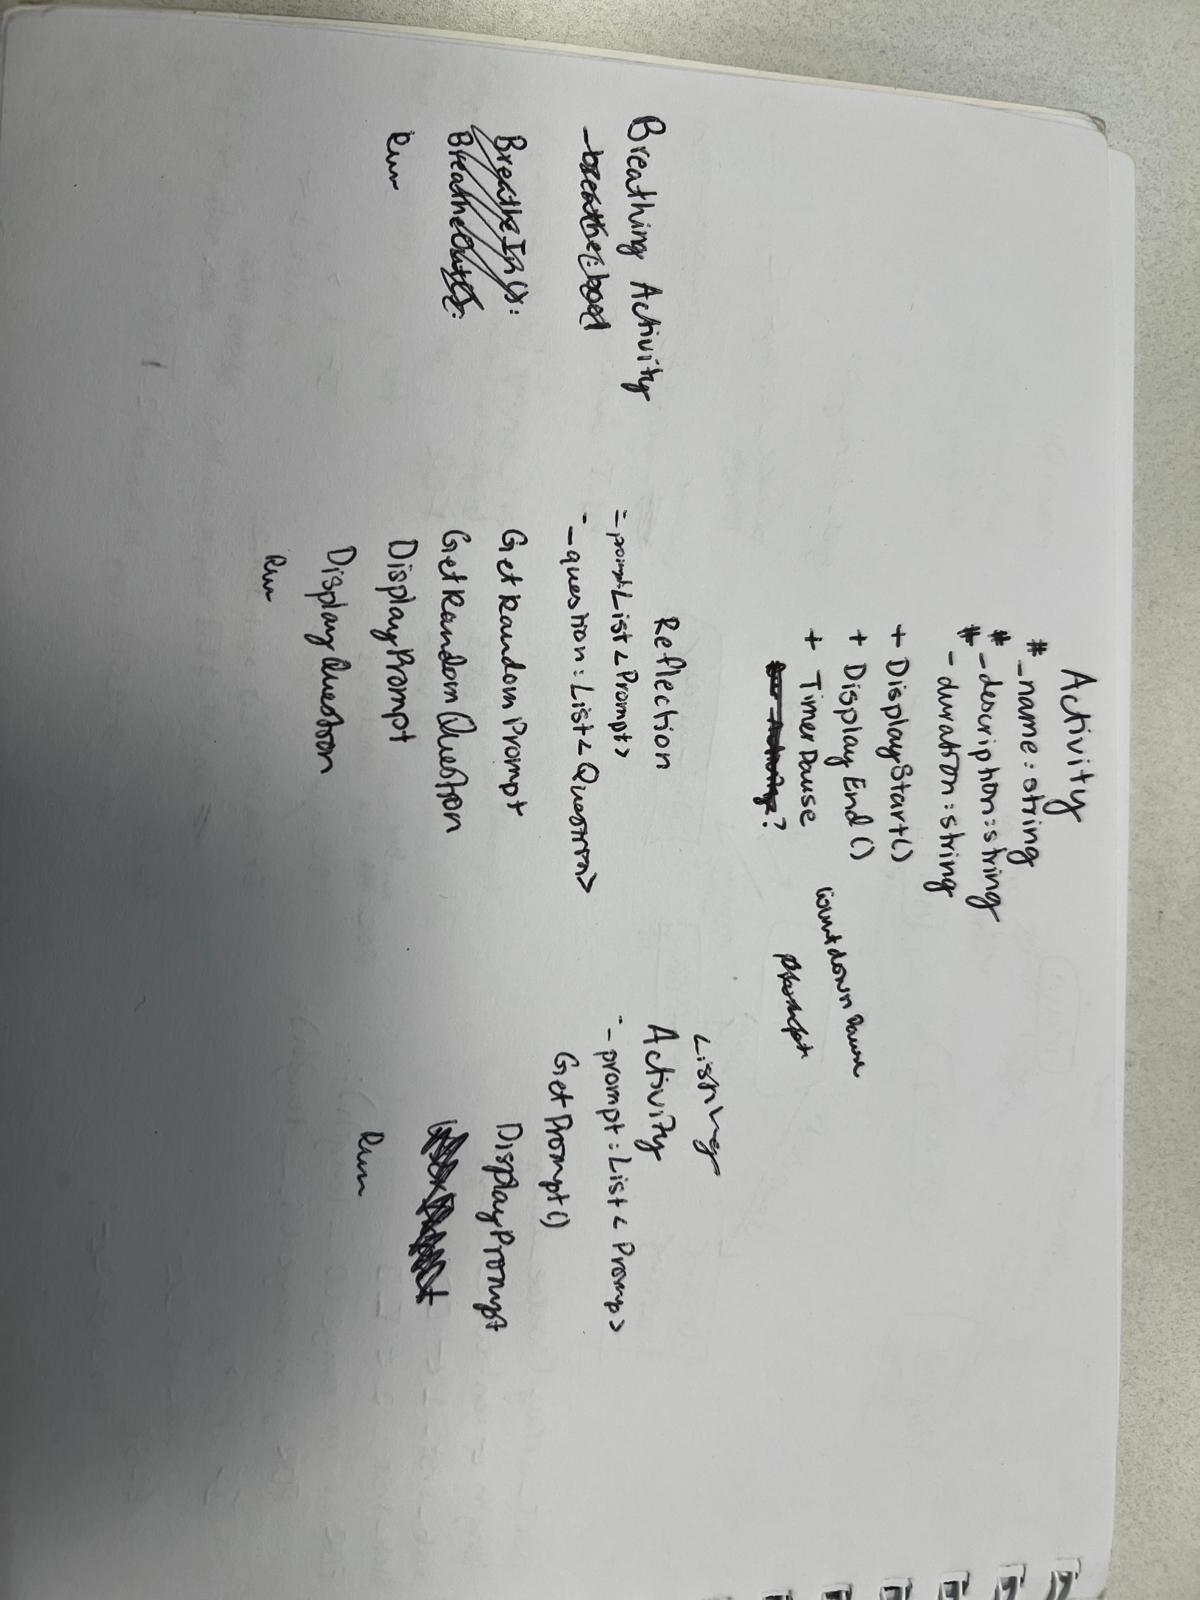 Activity
# _name: string
# _description: string
# _duration: string
+ DisplayStart()
+ DisplayEnd()
+ TimerPause
Countdown Pause
Prompt
Activity?
Breathing Activity
_breathe: bool
BreatheIn():
BreatheOut():
Run
Reflection
- _prompt: List<Prompt>
- _question: List<Question>
GetRandomPrompt
GetRandomQuestion
DisplayPrompt
DisplayQuestion
Run
Listing
Activity
- _prompt: List< Promp>
GetPrompt()
DisplayPrompt
Run